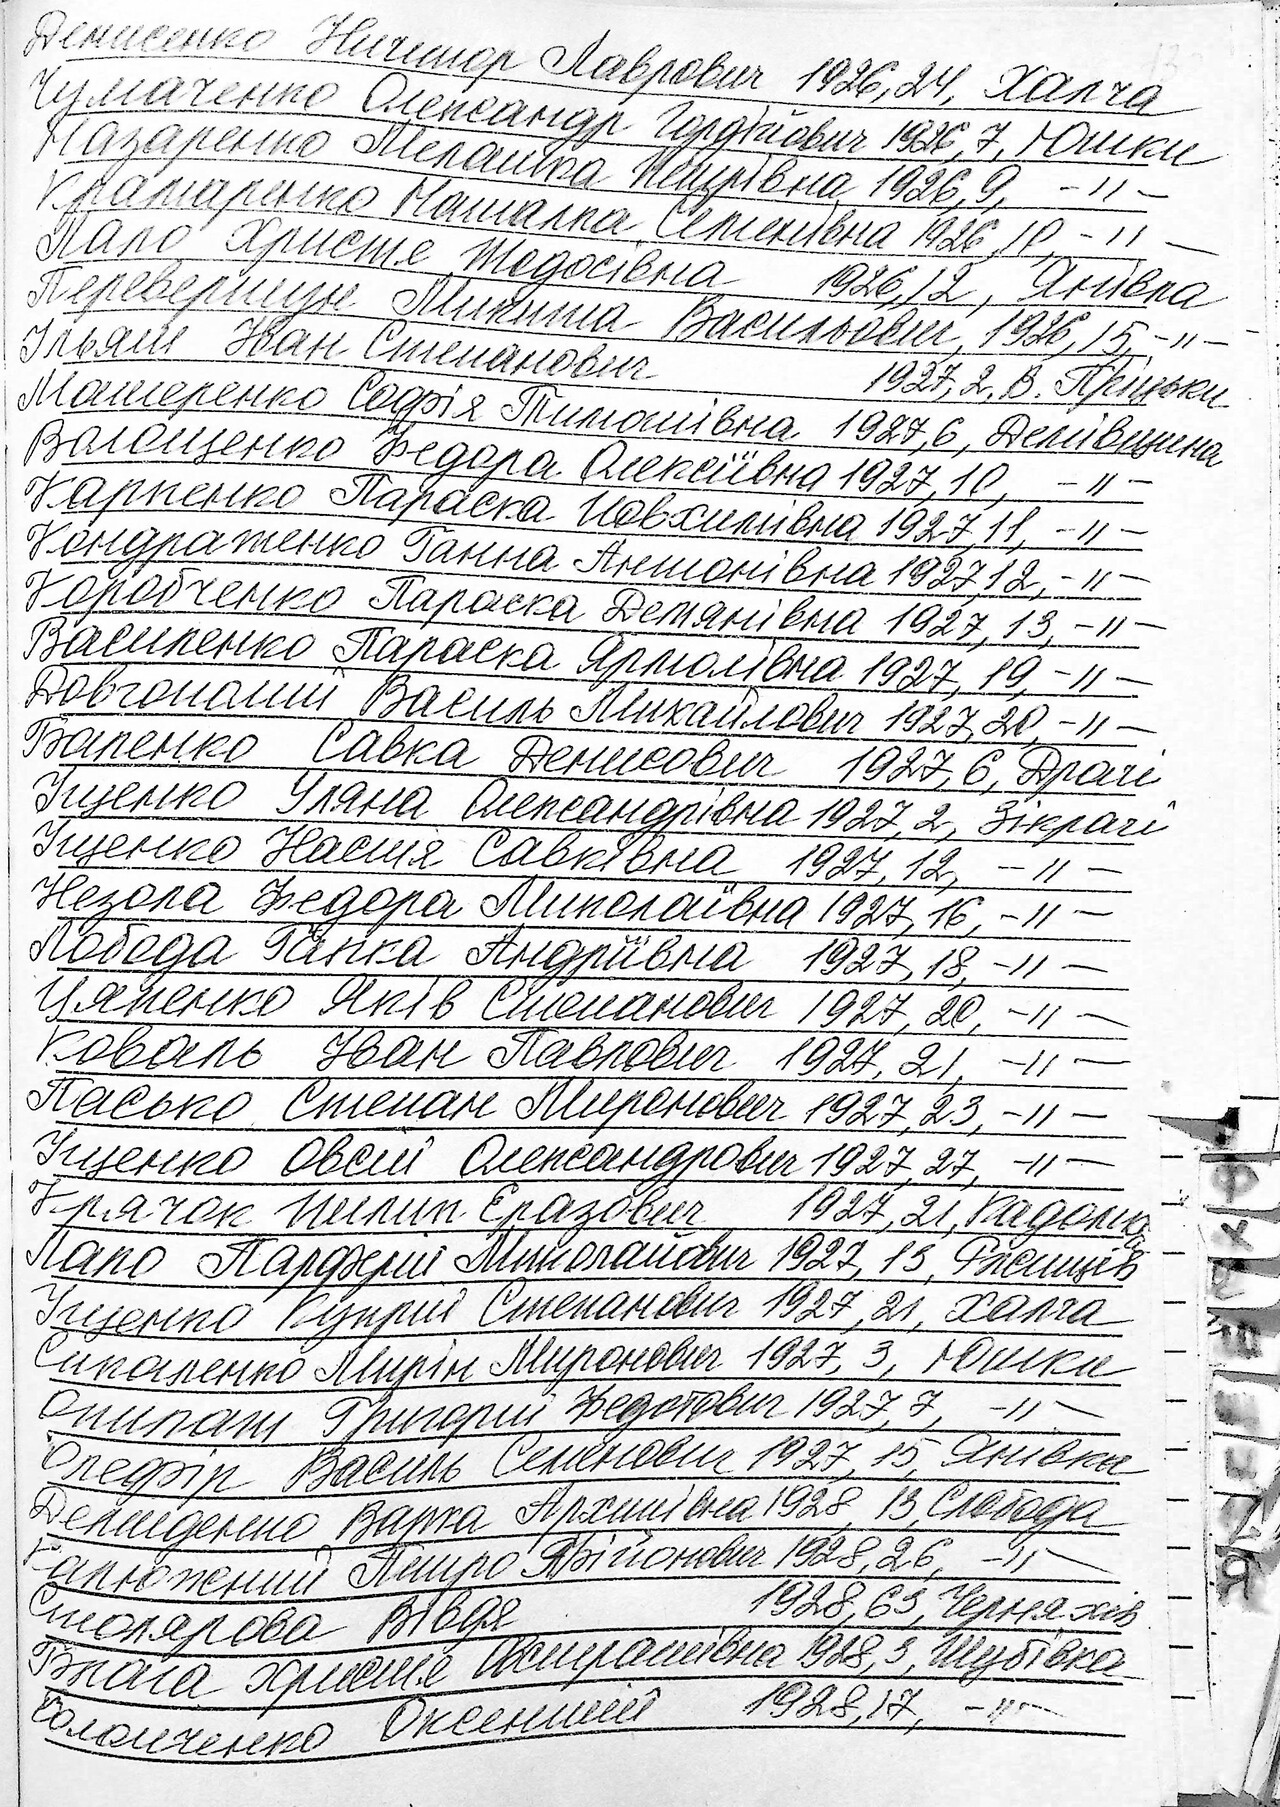 Денисенко Ничипор Лаврович 1926, 24, Халча
Чумаченко Олександр Гордійович 1926, 7, Юшки
Назаренко Мелашка Петрівна 1926, 9, -"-
Крамаренко Наталка Семенівна 1926, 10, -"-
Пало Христя Тодосівна 1926, 12, Янівка
Перевертун Микита Васильович, 1926, 15, -"-
Ільяш Іван Степанович 1927, 2, В. Прицьки
Матеренко Софія Тимошівна 1927, 6, Демівщина
Волощенко Федора Олексіївна 1927, 10, -"-
Карпенко Параска Йовхимівна 1927, 11, -"-
Кондратенко Ганна Антонівна 1927, 12, -"-
Коробченко Параска Дем'янівна 1927, 13, -"-
Василенко Параска Ярмолівна 1927, 19, -"-
Довгопотий Василь Михайлович 1927, 20, -"-
Баленко Савка Денисович 1927, 6, Драчі
Іщенко Уляна Олександрівна 1927, 2, Зікрачі
Іщенко Настя Савківна 1927, 12, -"-
Незола Федора Миколаївна 1927, 16, -"-
Лобода Ганка Андріївна 1927, 18, -"-
Цяпенко Яків Степанович 1927, 20, -"-
Коваль Іван Павлович 1927, 21, -"-
Пасько Степан Миронович 1927, 23, -"-
Іщенко Овсій Олександрович 1927, 27, -"-
Крячок Пилип Еразович 1927, 21, Кадомка
Пало Парферій Миколайович 1927, 13, Ржищів
Іщенко Купрій Степанович 1927, 21, Халча
Сикаленко Мирін Миронович 1927, 3, Юшки
Григорій Федотович 1927, 7, -"-
Олефір Василь Семенович 1927, 15, Янівка
Демиденко Варка Архипівна 1928, 13, Слобода
Калюжний Петро 1928, 26, -"-
Столярова Вівдя 1928, 63, Черняхів
Христя 1928, 3, Шубівка
Оксентій 1928, 17, -"-